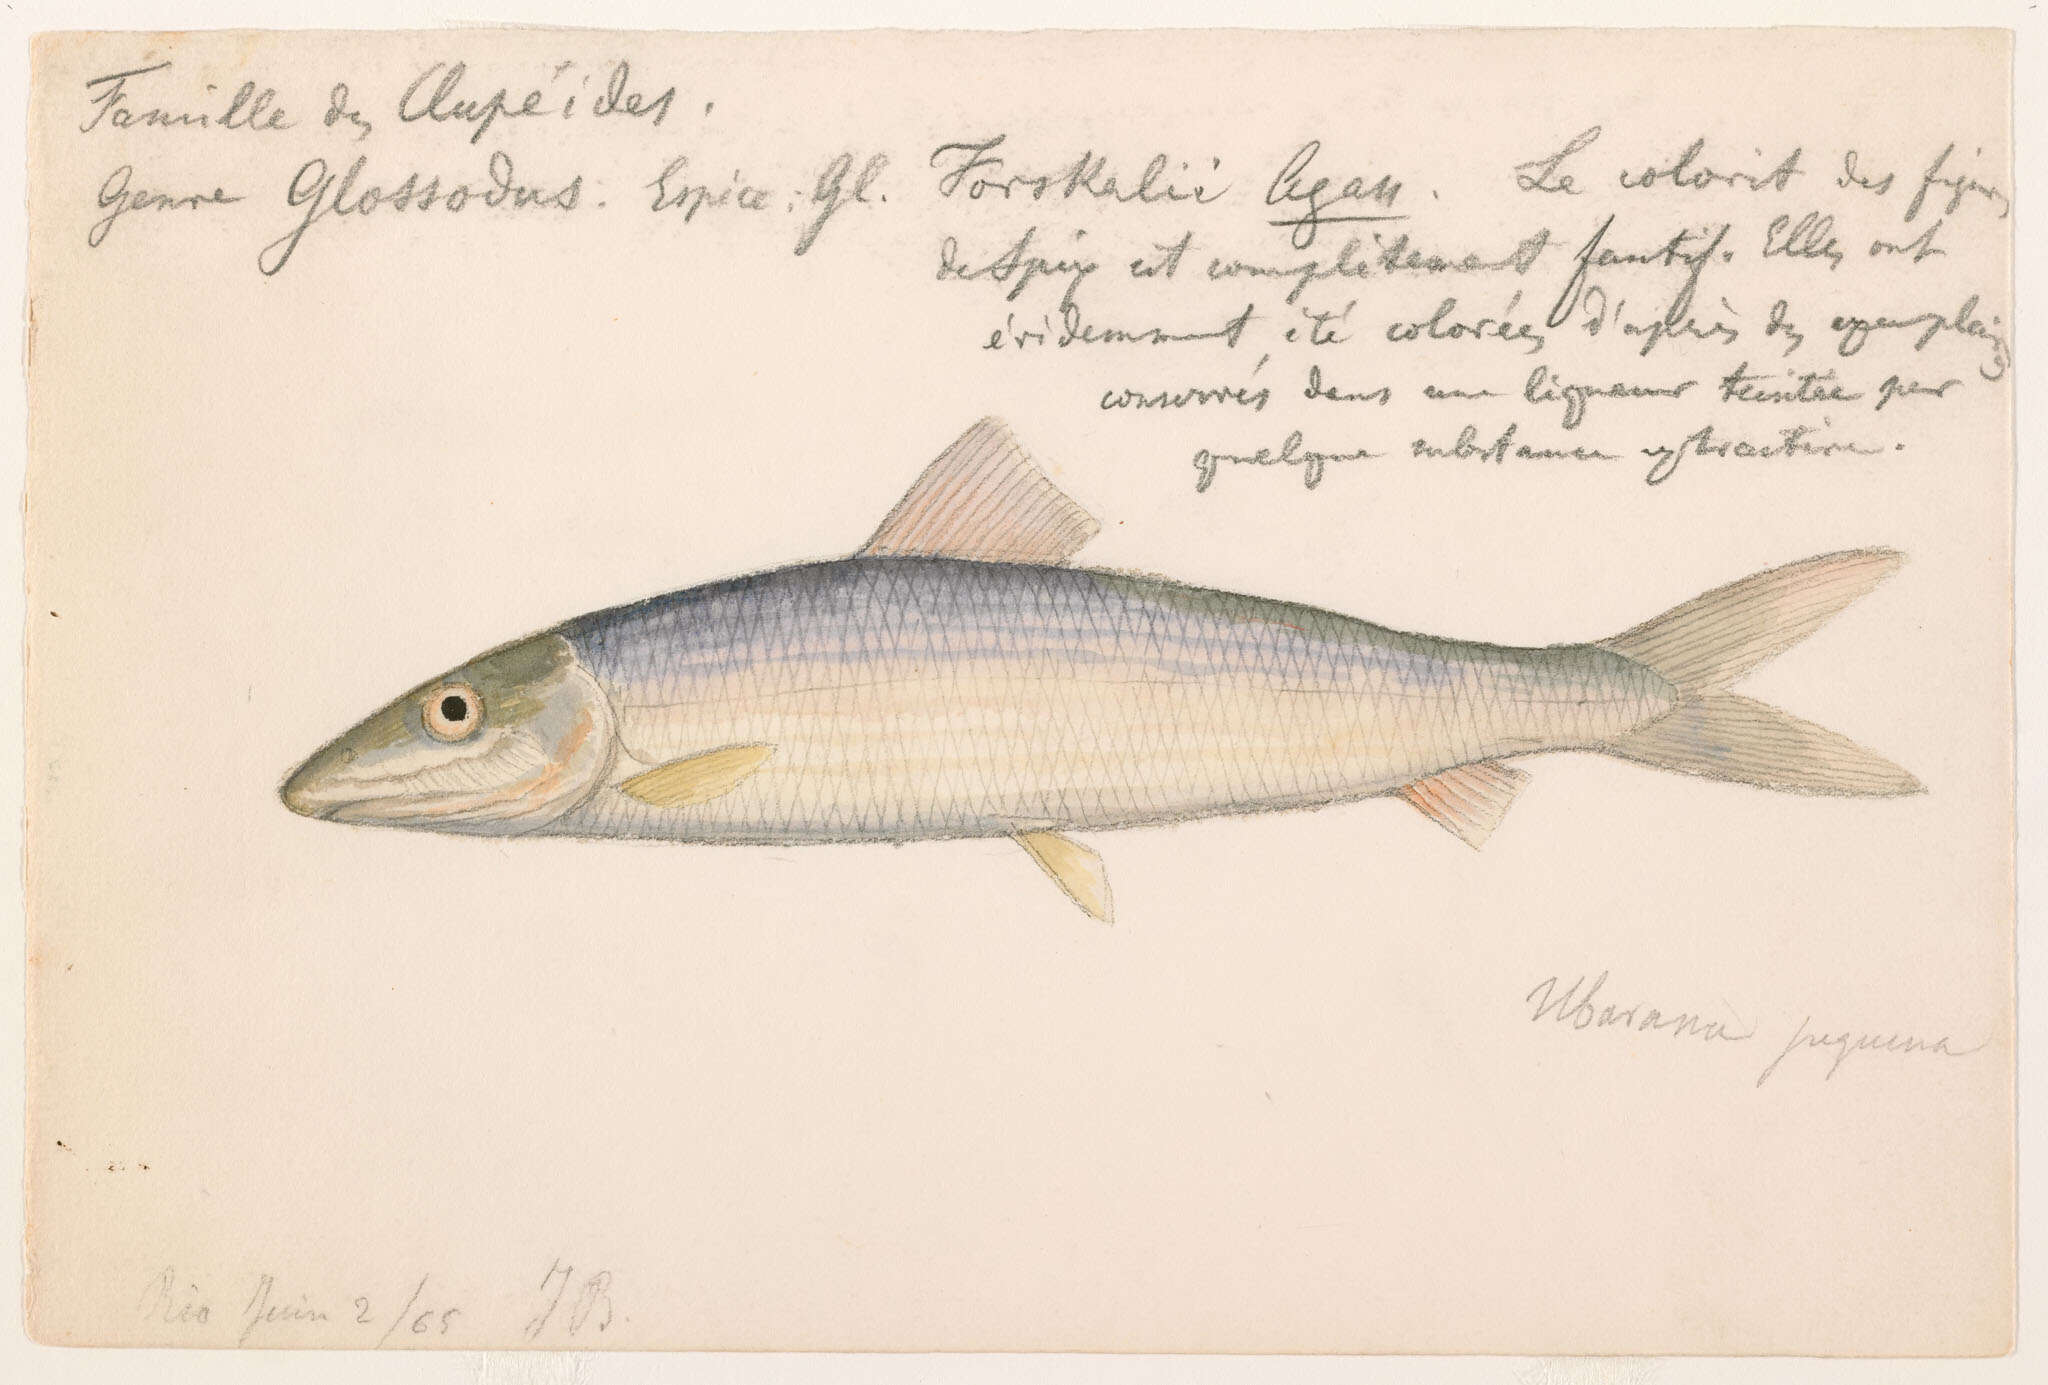 Famille des Clupéides.
Genre Glossodus. Espèce: Gl. Forskalii Agass. Le coloris des figures
de Spix est complètement fautif. Elles ont
évidemment été colorées d'après des exemplaires
conservés dans une liqueur teintée par
quelque substance extractive.
Ubarana pequena
Rio Juin 2/65 JB.